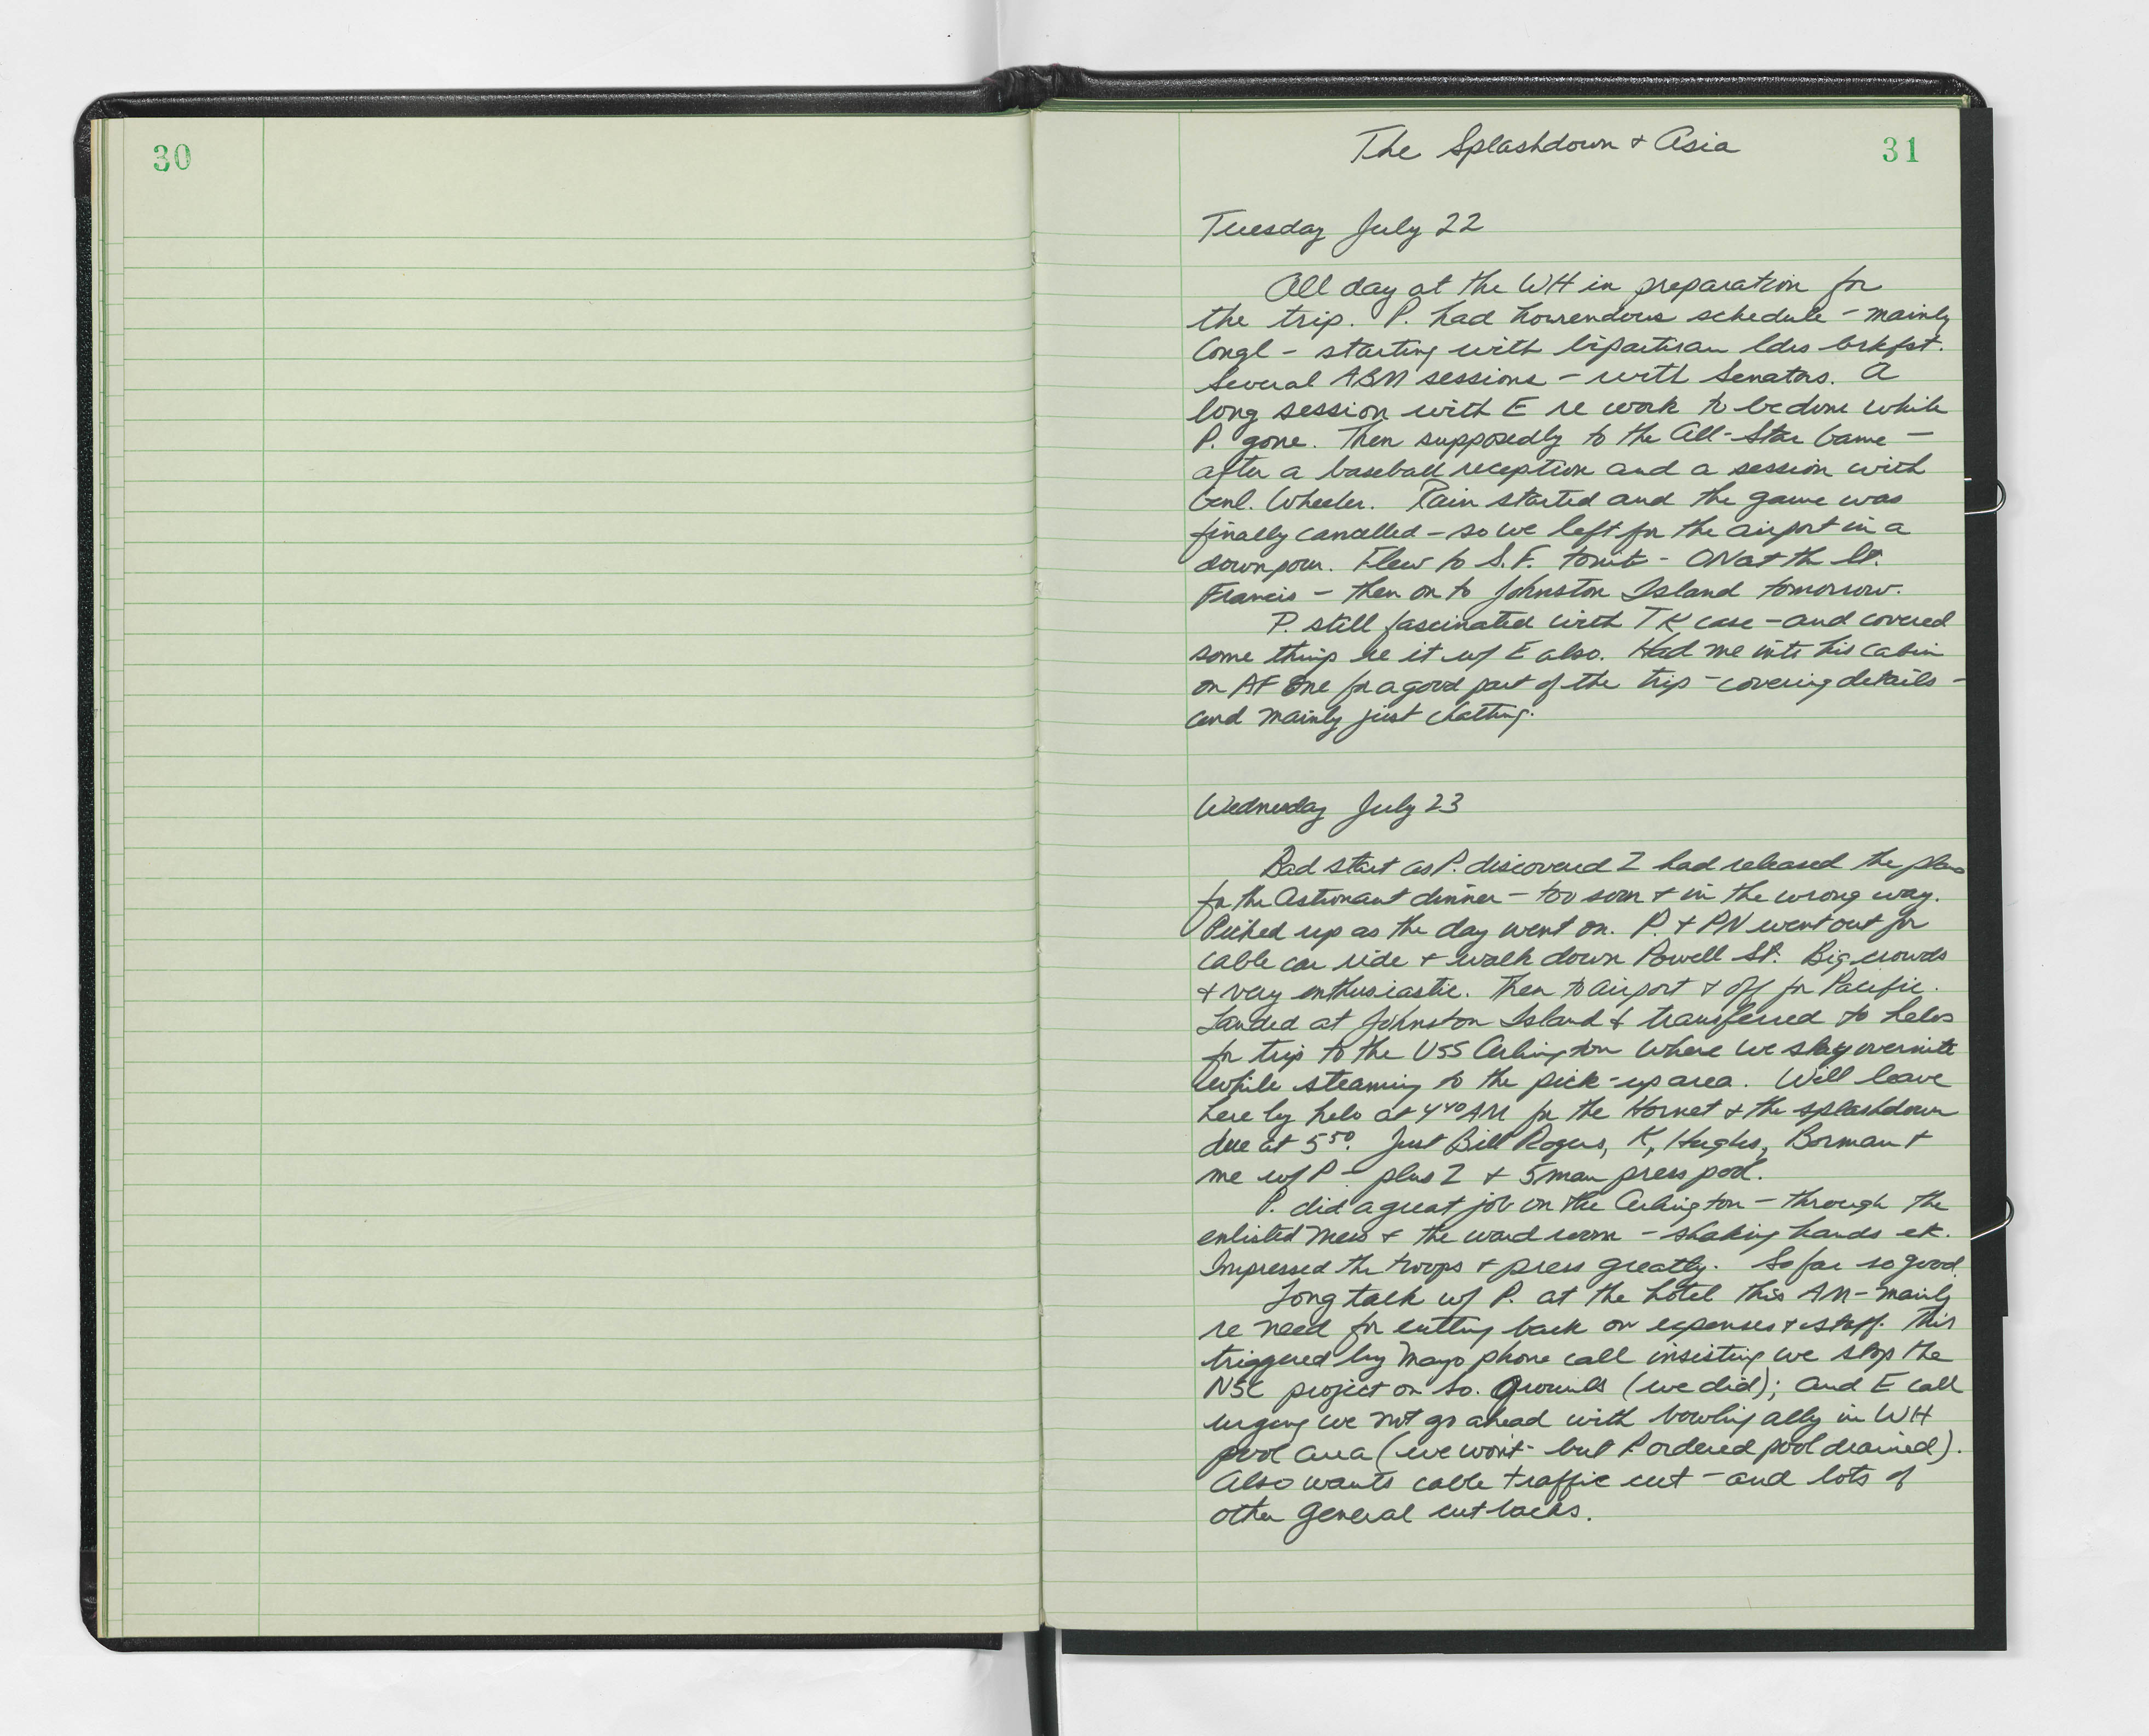 30
The Splashdown + Asia
31
Tuesday July 22
All day at the WH in preparation for
the trip. P. had horrendous schedule - mainly
Congl - starting with bipartisan ldrs brkfst.
Several ABM sessions - with Senators. A
long session with E re work to be done while
P. gone. Then supposedly to the All-Star Game -
after a baseball reception and a session with
Genl. Wheeler. Rain started and the game was
finally cancelled - so we left for the airport in a
downpour. Flew to S.F. tonite - ON at the St.
Francis - then on to Johnston Island tomorrow.
P. still fascinated with TK case - and covered
some things re it w/ E also. Had me into his cabin
on AF One for a good part of the trip - covering details -
and mainly just chatting.
Wednesday July 23
Bad start as P. discovered Z had released the plans
for the Astronaut dinner - too soon + in the wrong way.
Picked up as the day went on. P. + PN went out for
cable car ride + walk down Powell St. Big crowds
+ very enthusiastic. Then to airport + off for Pacific.
Landed at Johnston Island & transferred to helos
for trip to the USS Arlington where we stay overnite
while steaming to the pick-up area. Will leave
here by helo at 4:40 AM for the Hornet + the splashdown
due at 5:50. Just Bill Rogers, K, Hughes, Borman +
me w/ P - plus Z + 5 man press pool.
P. did a great job on the Arlington - through the
enlisted mess + the ward room - shaking hands etc.
Impressed the troops + press greatly. So far so good.
Long talk w/ P. at the hotel this AM - mainly
re need for cutting back on expenses + staff. This
triggered by Mayo phone call insisting we stop the
NSC project on So. Grounds (we did); and E call
urging we not go ahead with bowling ally in WH
pool area (we won't - but P ordered pool drained).
Also wants cable traffic cut - and lots of
other general cut backs.